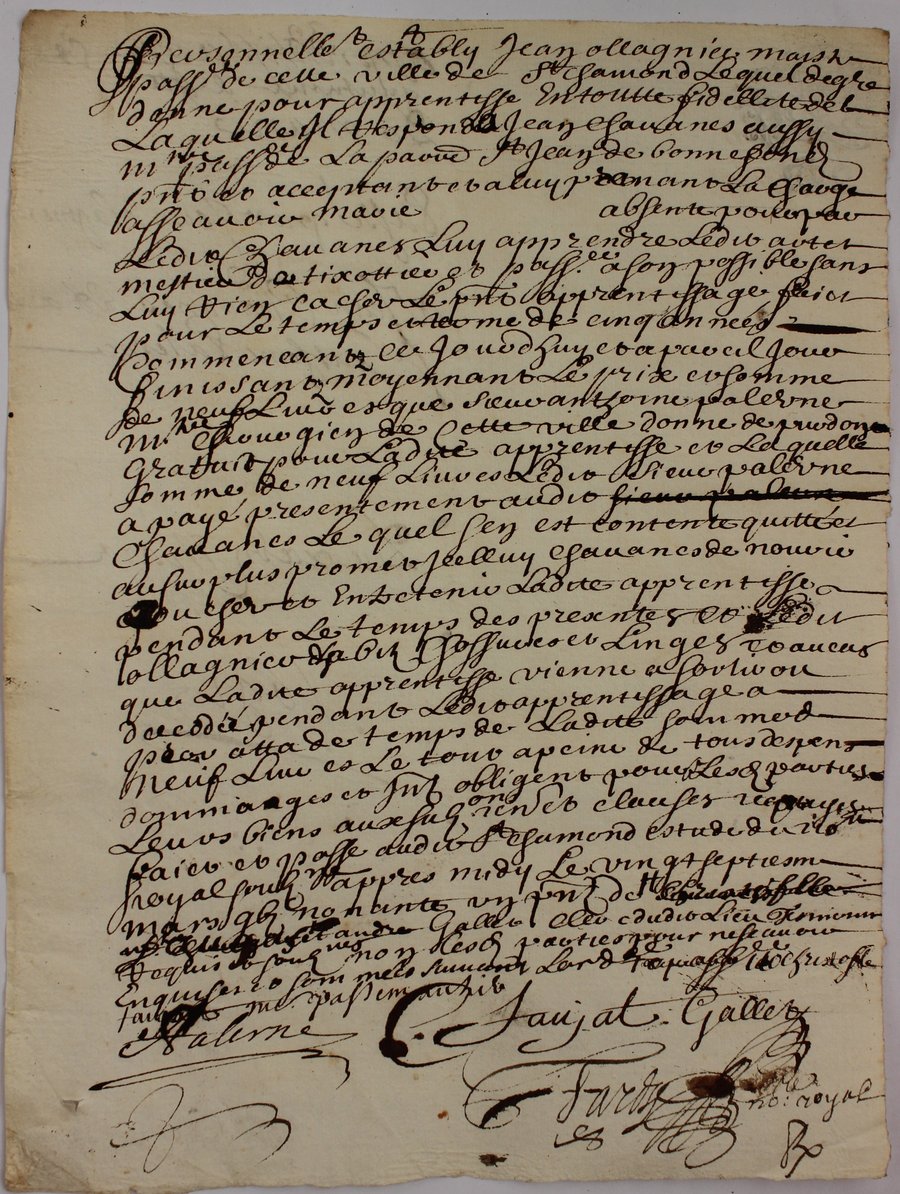 Personnellem.t estably Jean ollagnier mais.e
pass.r de cette ville de S.t chamond Lequel degre
donne pour apprentisse Entoutte fidellite de
Laquelle Jl respond a Jean chavanes aussy
m.re pass.r de La parr.e S.t Jean de bonnefond
pnt et aceptant et a luy prenant La charge
assavoir marie absente pour par
Ledit Chavanes Luy apprendre Ledit art et
mestier de tixottier et pass.r a son possible sans
Luy rien cacher Le pnt apprentissage faict
pour Le temps et terme de cinq années
Commencant ce Jourdhuy et a pareil Jour
finissant moyennant Le prix et somme
de neuf Livres que sieur anthoine palerne
m.re chirurgien de Cette ville donne de pur don
Gratuit pour Ladite apprentisse et Laquelle
somme de neuf Livres Ledit sieur palerne
a payé presentement audit
Chavanes Lequel sen est contente quitte et
au surplus promet Jcelluy chavanes de nourir
Coucher et Entretenir Ladite apprentisse
pendant Le temps des presentes et Ledit
ollagnier dabitz chossures et Linges et au cas
que Ladite apprentisse vienne a sortir ou
deceder pendant Ledit apprentissage
de temps de Ladite somme de
Neuf Livres Le tout a peine de tous despens
dommages et Jnt obligent pour Lesd parties
Leurs biens aux subon ren.on et clauses
faict et passe audit S.t chamond estude du no.e
royal soub.ne appres midy Le vingt septiesme
mars gbj nonante un pnt
andre Gallet clerc dudit Lieu
requis et soubz.nes non Lesd parties pour ne scavoir
Enquis et sommees suivant Lord

Palerne Jaujat Gallet
Tardy no.e royal